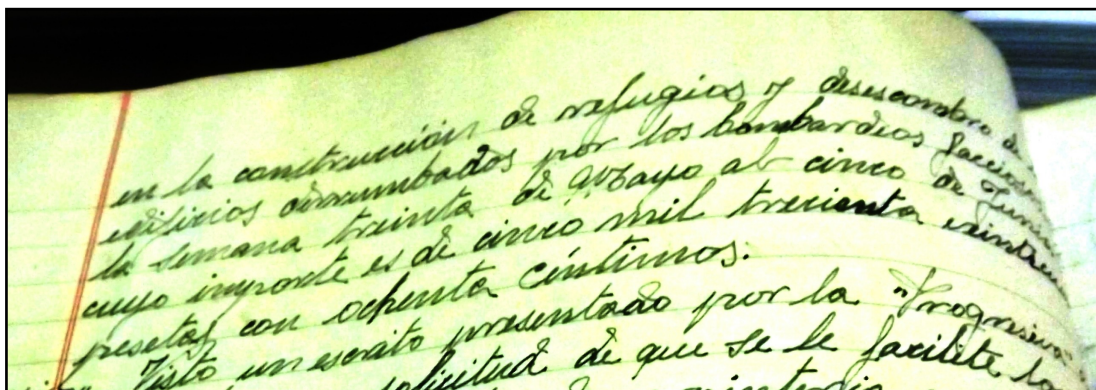 en la construccion de refugios y desescombro de
edificios derrumbados por los bombardeos facciosos
la semana treinta de Mayo al cinco de Junio
cuyo importe es de cinco mil trecienta
pesetas con ochenta céntimos.
Visto un escrito presentado por la "Progresiva"
solicitud de que se le facilite la